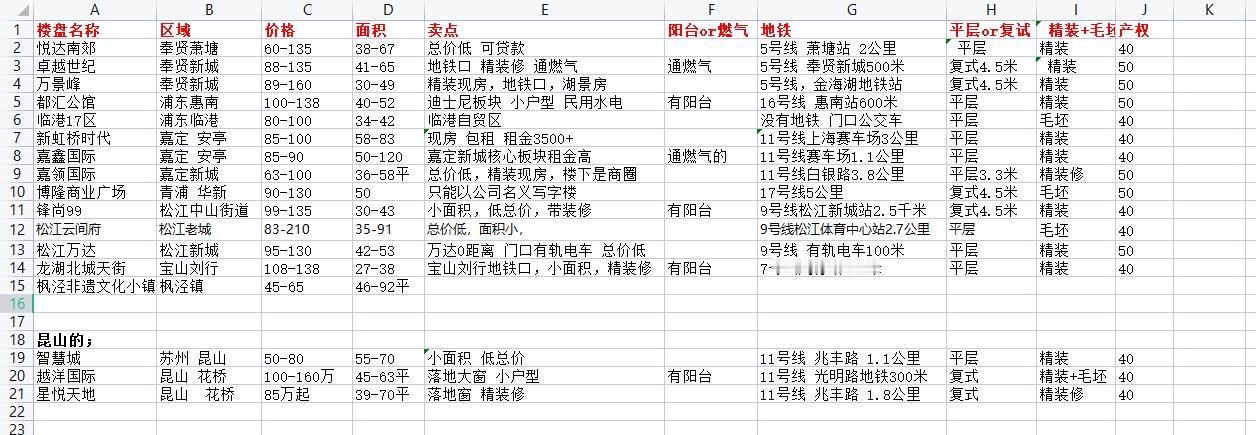 A B C D E F G H I J K
1 楼盘名称 区域 价格 面积 卖点 阳台or燃气 地铁 平层or复试 精装+毛坯 产权
2 悦达南郊 奉贤萧塘 60-135 38-67 总价低 可贷款 5号线 萧塘站 2公里 平层 精装 40
3 卓越世纪 奉贤新城 88-135 41-65 地铁口 精装修 通燃气 通燃气 5号线 奉贤新城500米 复式4.5米 精装 50
4 万景峰 奉贤新城 89-160 30-49 精装现房，地铁口，湖景房 5号线，金海湖地铁站 复式4.5米 精装 50
5 都汇公馆 浦东惠南 100-138 40-52 迪士尼板块 小户型 民用水电 有阳台 16号线 惠南站600米 平层 精装 50
6 临港17区 浦东临港 80-100 34-42 临港自贸区 没有地铁 门口公交车 平层 毛坯 40
7 新虹桥时代 嘉定 安亭 85-100 58-83 现房 包租 租金3500+ 11号线上海赛车场3公里 平层 精装 40
8 嘉鑫国际 嘉定 安亭 85-90 50-120 嘉定新城核心板块租金高 通燃气的 11号线赛车场1.1公里 平层 精装 40
9 嘉领国际 嘉定新城 63-100 36-58平 总价低，精装现房，楼下是商圈 11号线白银路3.8公里 平层3.3米 精装修 50
10 博隆商业广场 青浦 华新 90-130 50 只能以公司名义写字楼 17号线5公里 复式4.5米 毛坯 50
11 锋尚99 松江中山街道 99-135 30-43 小面积，低总价，带装修 有阳台 9号线松江新城站2.5千米 复式4.5米 精装 40
12 松江云间府 松江老城 83-210 35-91 总价低，面积小， 9号线松江体育中心站2.7公里 平层 毛坯 40
13 松江万达 松江新城 95-130 42-53 万达0距离 门口有轨电车 总价低 9号线 有轨电车100米 平层 精装 50
14 龙湖北城天街 宝山刘行 108-138 27-38 宝山刘行地铁口，小面积，精装修 有阳台 7 平层 精装 40
15 枫泾非遗文化小镇 枫泾镇 45-65 46-92平
16
17
18 昆山的；
19 智慧城 苏州 昆山 50-80 55-70 小面积 低总价 11号线 兆丰路 1.1公里 平层 精装 40
20 越洋国际 昆山 花桥 100-160万 45-63平 落地大窗 小户型 有阳台 11号线 光明路地铁300米 复式 精装+毛坯 40
21 星悦天地 昆山 花桥 85万起 39-70平 落地窗 精装修 11号线 兆丰路 1.8公里 复式 精装修 40
22
23